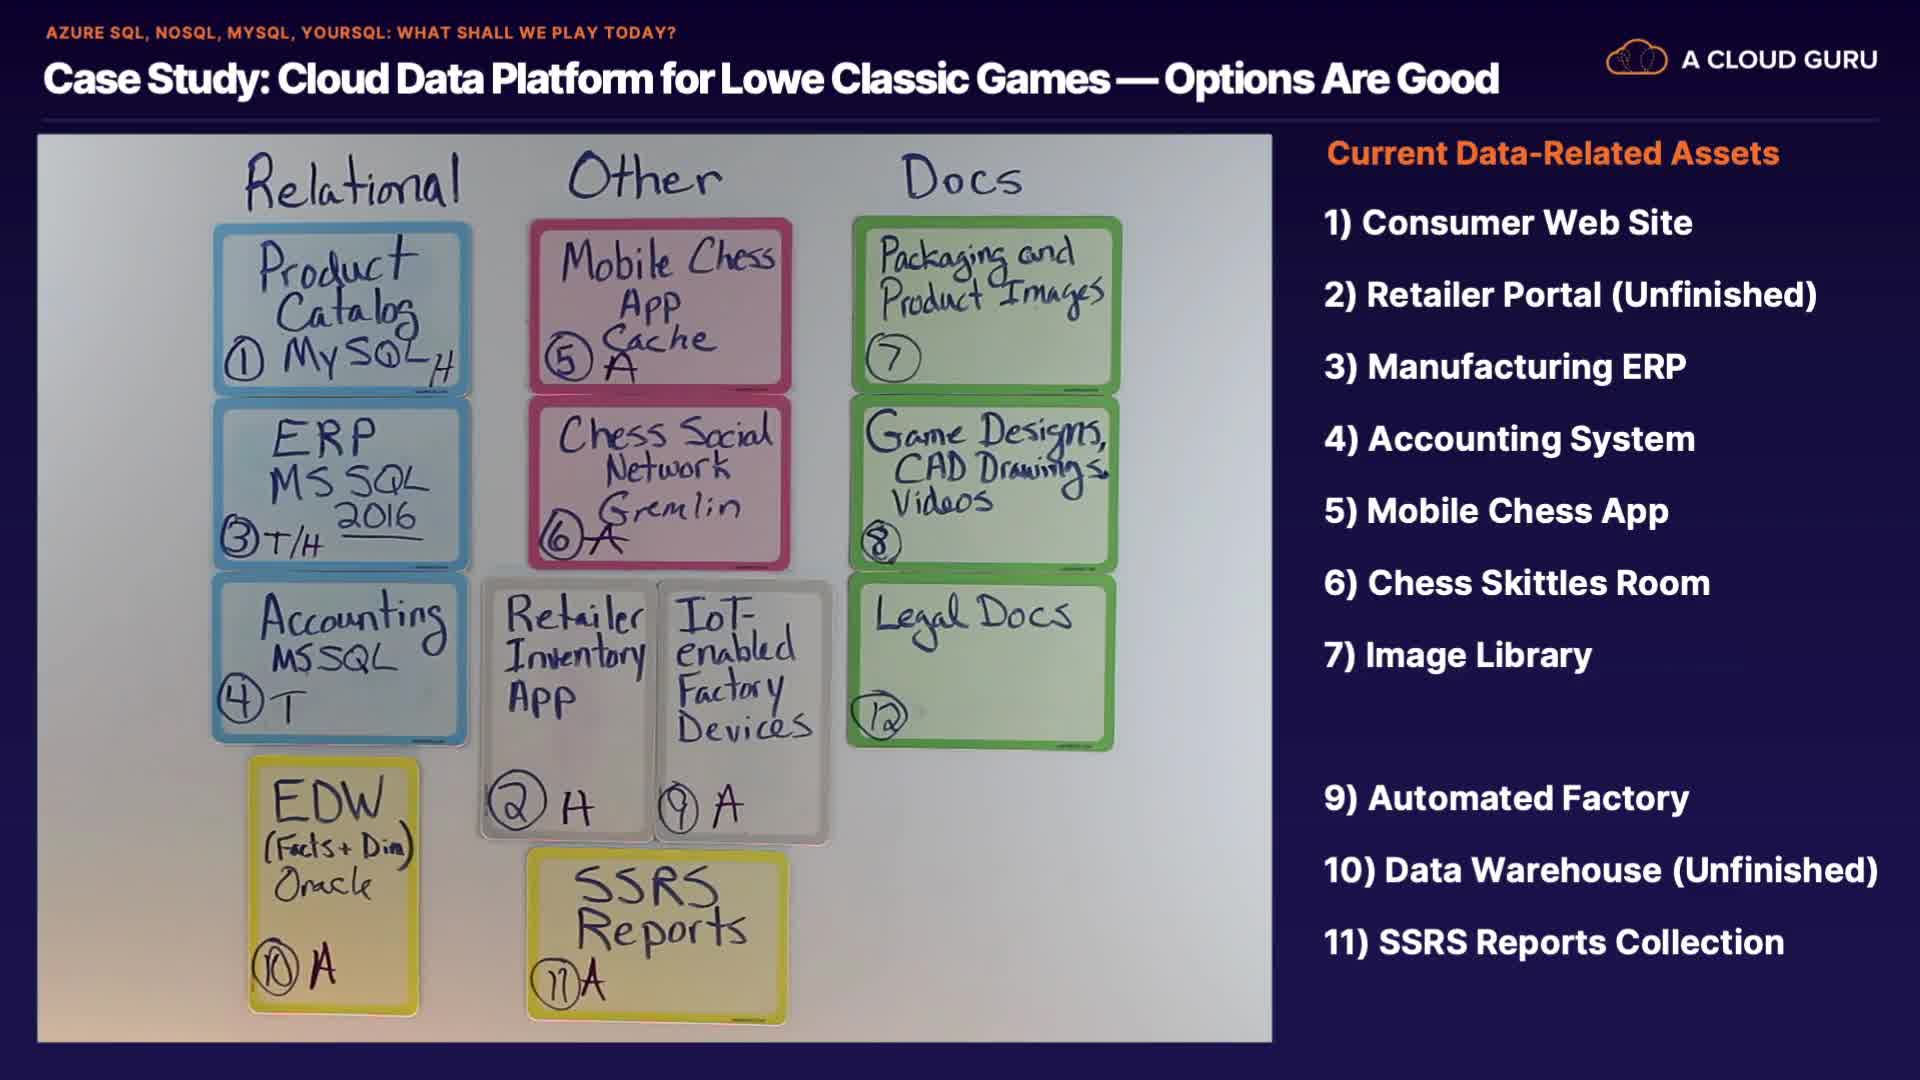 AZURE SQL, NOSQL, MYSQL, YOURSQL: WHAT SHALL WE PLAY TODAY?
Case Study: Cloud Data Platform for Lowe Classic Games — Options Are Good
A CLOUD GURU
Relational
Product
Catalog
1 MySQL H
ERP
MS SQL
2016
3 T/H
Accounting
MSSQL
4 T
EDW
(Facts + Dim)
Oracle
10 A
Other
Mobile Chess
App
Cache
5 A
Chess Social
Network
Gremlin
6 A
Retailer
Inventory
App
2 H
IoT-
enabled
Factory
Devices
9 A
SSRS
Reports
11 A
Docs
Packaging and
Product Images
7
Game Designs,
CAD Drawings
Videos
8
Legal Docs
12
Current Data-Related Assets
1) Consumer Web Site
2) Retailer Portal (Unfinished)
3) Manufacturing ERP
4) Accounting System
5) Mobile Chess App
6) Chess Skittles Room
7) Image Library
9) Automated Factory
10) Data Warehouse (Unfinished)
11) SSRS Reports Collection